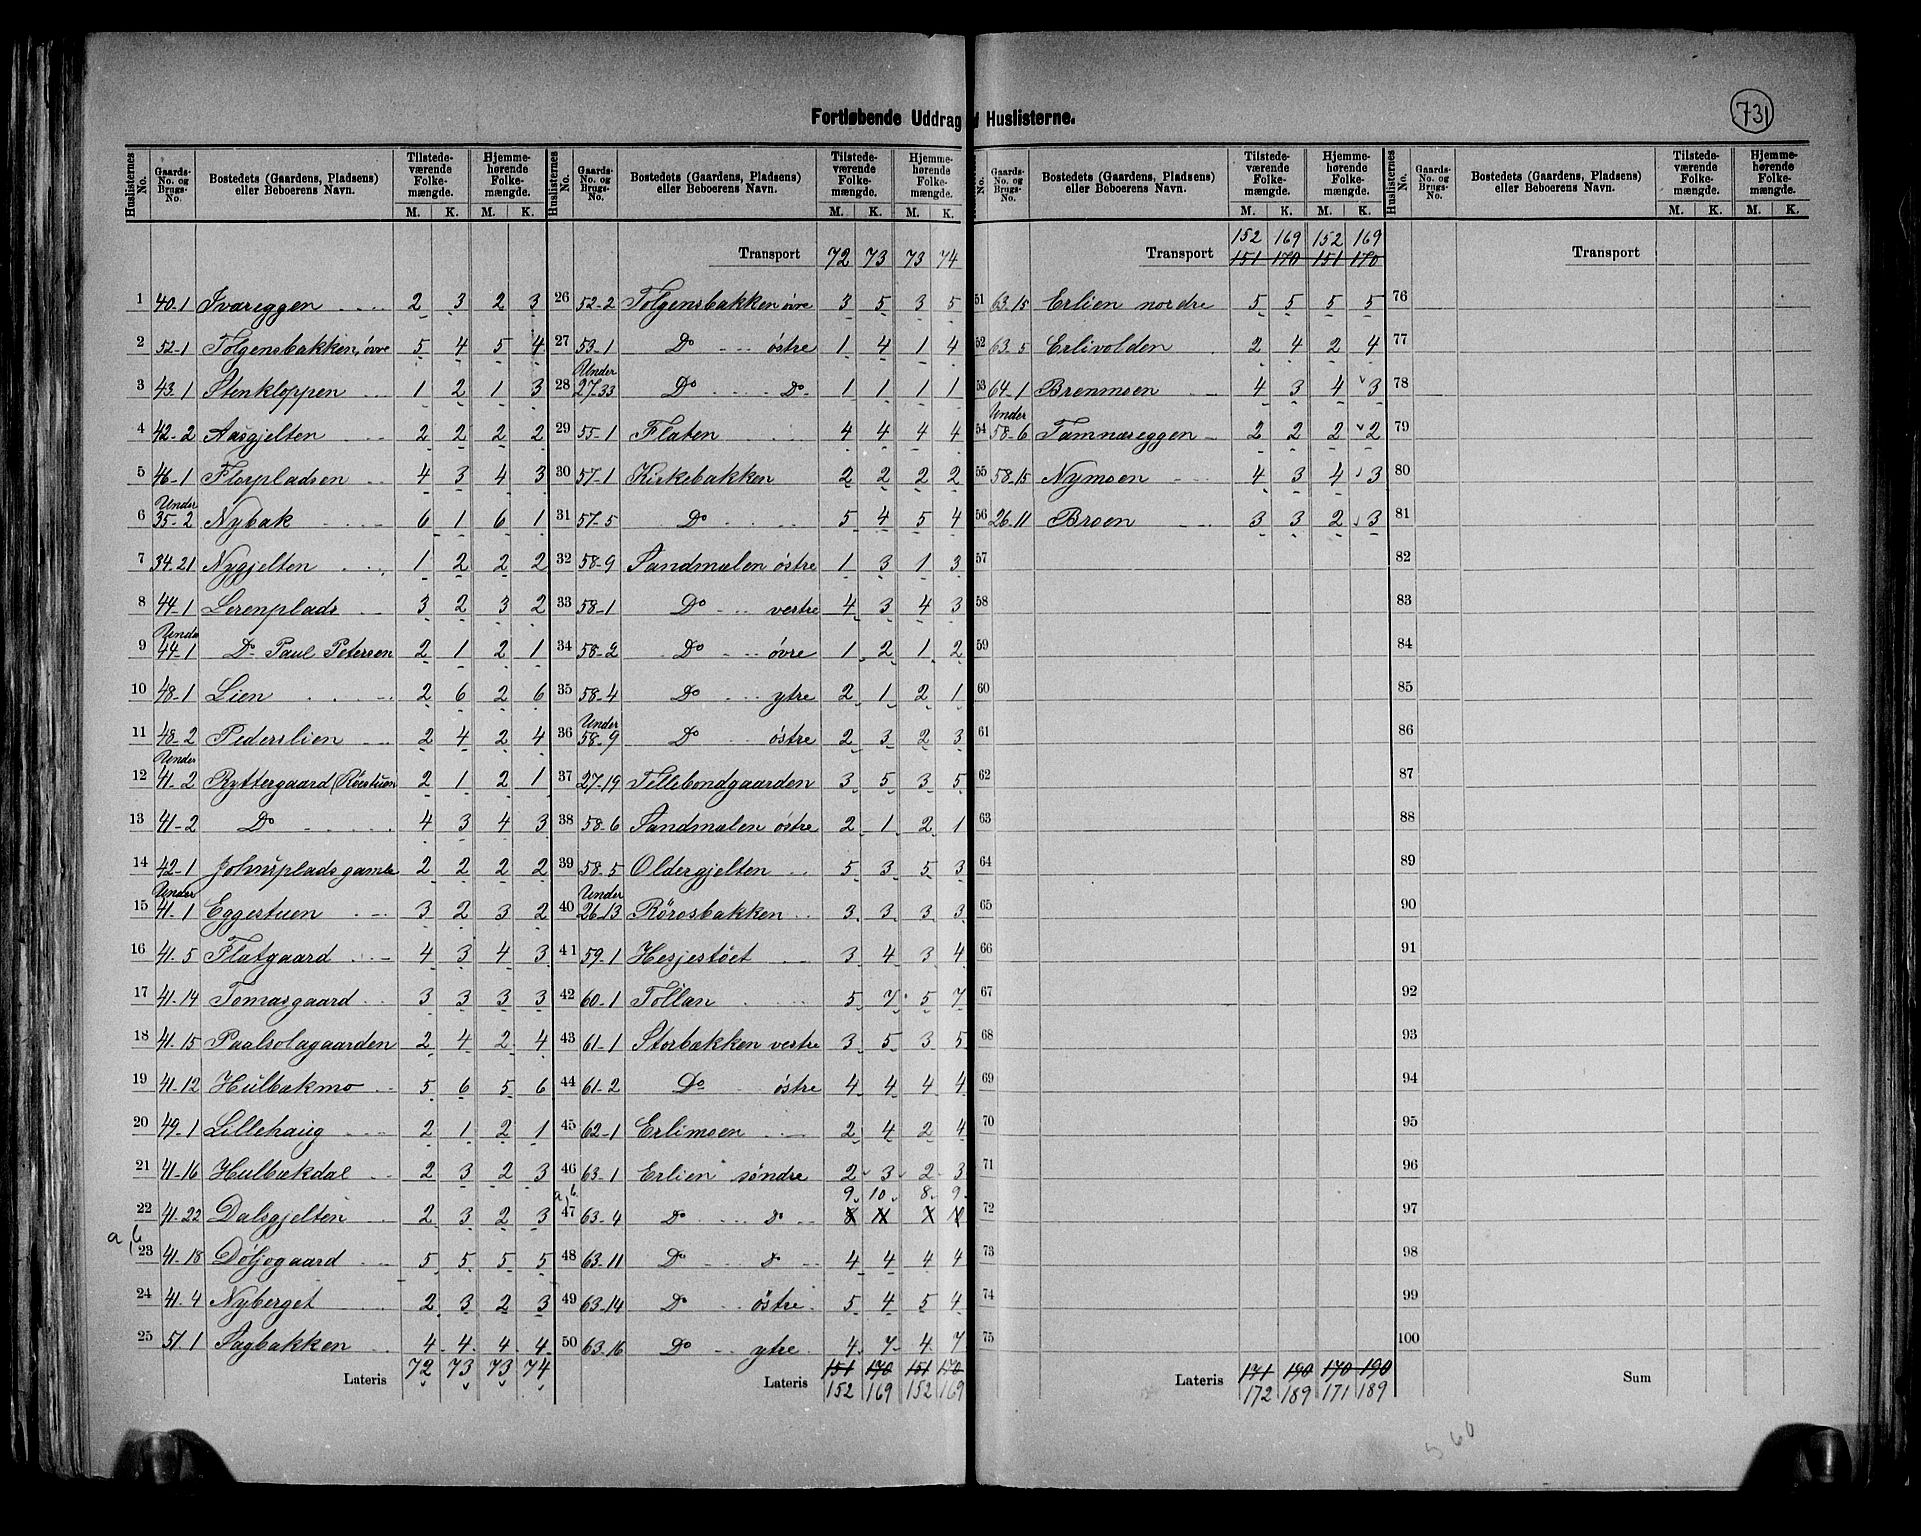 731
Fortløbende Uddrag af Huslisterne.
Huslisternes No. | Gaards-No. og Brugs-No. | Bostedets (Gaardens, Pladsens) eller Beboerens Navn. | Tilstedeværende Folkemængde. M. K. | Hjemmehørende Folkemængde. M. K.
1 | 40-1 | Ivareggen | 2 | 3 | 2 | 3
2 | 52-1 | Tolgensbakken, øvre | 5 | 4 | 5 | 4
3 | 43-1 | Stenkloppen | 1 | 2 | 1 | 3
4 | 42-2 | Aasgjelten | 2 | 2 | 2 | 2
5 | 46-1 | Florpladsen | 4 | 3 | 4 | 3
6 | Under 35-2 | Nybak | 6 | 1 | 6 | 1
7 | 34-21 | Nygjelten | 1 | 2 | 2 | 2
8 | 44-1 | Lerenplads | 3 | 2 | 3 | 2
9 | Under 44-1 | Do Paul Petersen | 2 | 1 | 2 | 1
10 | 48-1 | Lien | 2 | 6 | 2 | 6
11 | 48-2 | Pederslien | 2 | 4 | 2 | 4
12 | Under 41-2 | Ryttergaard (Rørstuen | 2 | 1 | 2 | 1
13 | 41-2 | Do | 4 | 3 | 4 | 3
14 | 42-1 | Johnsplads gamle | 2 | 2 | 2 | 2
15 | Under 41-1 | Eggestuen | 3 | 2 | 3 | 2
16 | 41-5 | Flatgaard | 4 | 3 | 4 | 3
17 | 41-14 | Tomasgaard | 3 | 3 | 3 | 3
18 | 41-15 | Paalsolagaarden | 2 | 4 | 2 | 4
19 | 41-12 | Hulbakmo | 5 | 6 | 5 | 6
20 | 49-1 | Lillehaug | 2 | 1 | 2 | 1
21 | 41-16 | Hulbækdal | 2 | 3 | 2 | 3
22 | 41-22 | Dalsgjelten | 2 | 3 | 2 | 3
a,b 23 | 41-18 | Døljogaard | 5 | 5 | 5 | 5
24 | 41-4 | Nyberget | 2 | 3 | 2 | 3
25 | 51 1 | Sagbakken | 4 | 4 | 4 | 4
Lateris | 72 | 73 | 73 | 74
Huslisternes No. | Gaards-No. og Brugs-No. | Bostedets (Gaardens, Pladsens) eller Beboerens Navn. | Tilstedeværende Folkemængde. M. K. | Hjemmehørende Folkemængde. M. K.
Transport | 72 | 73 | 73 | 74
26 | 52-2 | Tolgensbakken øvre | 3 | 5 | 3 | 5
27 | 53-1 | Do østre | 1 | 4 | 1 | 4
28 | Under 27-33 | Do Do | 1 | 1 | 1 | 1
29 | 55-1 | Flaten | 4 | 4 | 4 | 4
30 | 57-1 | Kirkebakken | 2 | 2 | 2 | 2
31 | 57-5 | Do | 5 | 4 | 5 | 4
32 | 58-9 | Sandmælen østre | 1 | 3 | 1 | 3
33 | 58-1 | Do vestre | 4 | 3 | 4 | 3
34 | 58-2 | Do øvre | 1 | 2 | 1 | 2
35 | 58-4 | Do ytre | 2 | 1 | 2 | 1
36 | Under 58-9 | Do østre | 2 | 3 | 2 | 3
37 | 27-19 | Tillebondgaarden | 3 | 5 | 3 | 5
38 | 58-6 | Sandmælen østre | 2 | 1 | 2 | 1
39 | 58-5 | Oldergjelten | 5 | 3 | 5 | 3
40 | Under 26-13 | Rørosbakken | 3 | 3 | 3 | 3
41 | 59-1 | Hesjestøet | 3 | 4 | 3 | 4
42 | 60-1 | Tollan | 5 | 7 | 5 | 7
43 | 61-1 | Storbækken vestre | 3 | 5 | 3 | 5
44 | 61-2 | Do østre | 4 | 4 | 4 | 4
45 | 62-1 | Erlimoen | 2 | 4 | 2 | 4
46 | 63-1 | Erlien søndre | 2 | 3 | 2 | 3
a,b. 47 | 63-4 | Do Do | 9 | 10 | 8 | 9
48 | 63-11 | Do Do | 4 | 4 | 4 | 4
49 | 63-14 | Do østre | 5 | 4 | 5 | 4
50 | 63-16 | Do ytre | 4 | 7 | 4 | 7
Lateris | 151 | 170 | 151 | 170
152 | 169 | 152 | 169
No. | Gaards-No. og Brugs-No. | Bostedets (Gaardens, Pladsens) eller Beboerens Navn. | Tilstedeværende Folkemængde. M. K. | Hjemmehørende Folkemængde. M. K.
152 | 169 | 152 | 169
Transport | 151 | 170 | 151 | 170
51 | 63-15 | Erlien nordre | 5 | 5 | 5 | 5
52 | 63-5 | Erlivolden | 2 | 4 | 2 | 4
53 | 64-1 | Brenmoen | 4 | 3 | 4 | 3
54 | Under 58-6 | Tamnæseggen | 2 | 2 | 2 | 2
55 | 58-15 | Nymoen | 4 | 3 | 4 | 3
56 | 26-11 | Broen | 3 | 3 | 2 | 3
57
58
59
60
61
62
63
64
65
66
67
68
69
70
71
72
73
74
75
Lateris | 171 | 190 | 170 | 190
172 | 189 | 171 | 189
Huslisternes No. | Gaards-No. og Brugs-No. | Bostedets (Gaardens, Pladsens) eller Beboerens Navn. | Tilstedeværende Folkemængde. M. K. | Hjemmehørende Folkemængde. M. K.
Transport
76
77
78
79
80
81
82
83
84
85
86
87
88
89
90
91
92
93
94
95
96
97
98
99
100
Sum
360